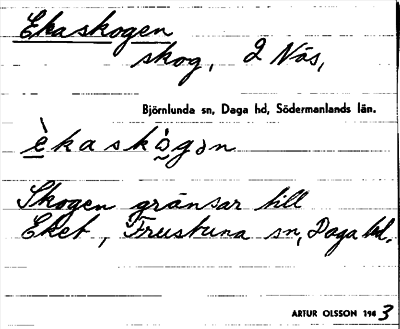 Ekaskogen
skog, 2 Näs,
Björnlunda sn, Daga hd, Södermanlands län.
è̱kaskò̱gən
Skogen gränsar till
Eket, Frustuna sn, Daga hd.
ARTUR OLSSON 1943